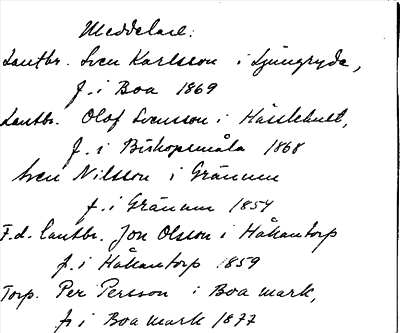 Meddelare:
Lantbr. Sven Karlsson i Ljungryda,
f. i Boa 1869
Lantbr. Olof Svensson i Hässlehult,
f. i Biskopsmåla 1868
Sven Nilsson i Gränum
f. i Gränum 1854
F.d. lantbr. Jon Olsson i Håkantorp
f. i Håkantorp 1859
Torp. Per Persson i Boa mark,
f. i Boa mark 1877